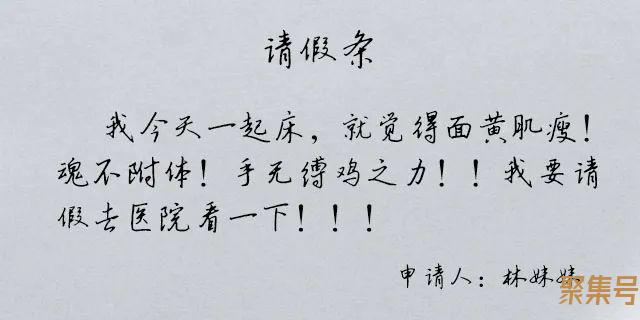 请假条
我今天一起床，就觉得面黄肌瘦！
魂不附体！手无缚鸡之力！！我要请
假去医院看一下！！！
申请人：林妹妹
聚集号